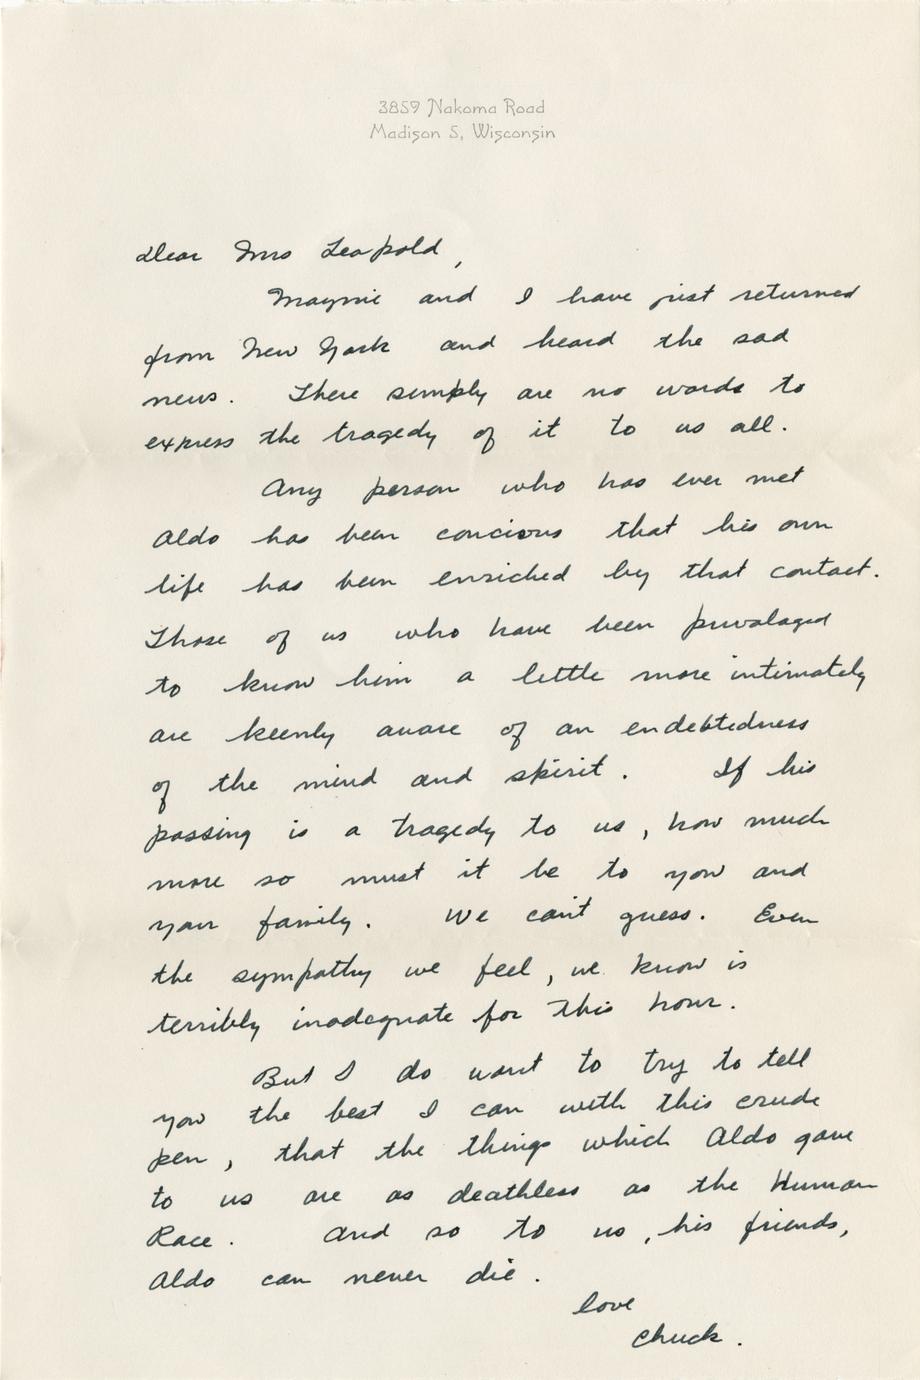 3859 Nakoma Road
Madison 5, Wisconsin
Dear Mrs Leopold,
Maymie and I have just returned
from New York and heard the sad
news. There simply are no words to
express the tragedy of it to us all.
Any person who has ever met
Aldo has been concious that his own
life has been enriched by that contact.
Those of us who have been privalaged
to know him a little more intimately
are keenly aware of an endebtedness
of the mind and spirit. If his
passing is a tragedy to us, how much
more so must it be to you and
your family. We can't guess. Even
the sympathy we feel, we know is
terribly inadequate for this hour.
But I do want to try to tell
you the best I can with this crude
pen, that the things which Aldo gave
to us are as deathless as the Human
Race. And so to us, his friends,
Aldo can never die.
love
Chuck.